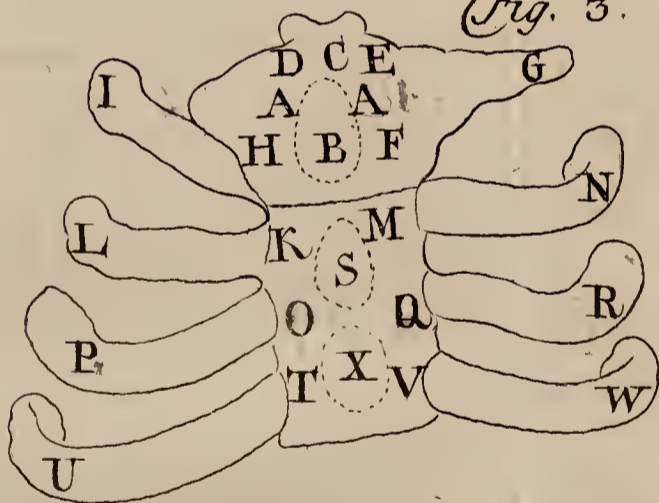 Fig. 3.
D C E G
I A A
H B F
N
L K M
S
O Q R
P X
T V W
U